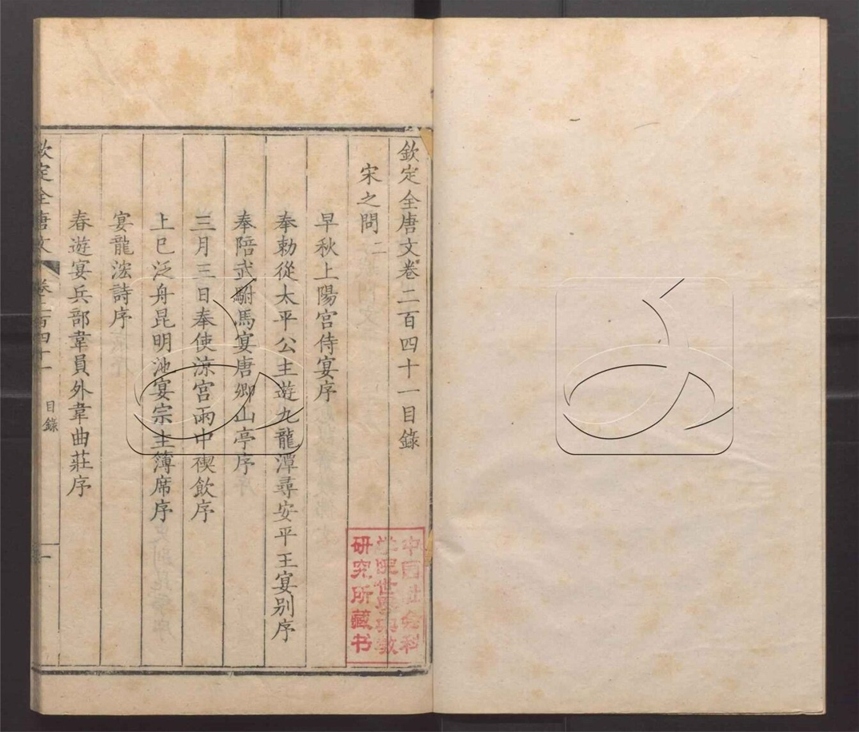 欽定全唐文卷二百四十一目錄
宋之問二
早秋上陽宮侍宴序
奉勅從太平公主遊九龍潭尋安平王宴别序
奉陪武駙馬宴唐卿山亭序
三月三日奉使涼宮雨中禊飲序
上巳泛舟昆明池宴宗主簿席序
宴龍泓詩序
春遊宴兵部韋員外韋曲莊序
欽定全唐文 卷二百四十一 目錄 一
中国社会科
学院世界宗教
研究所藏书